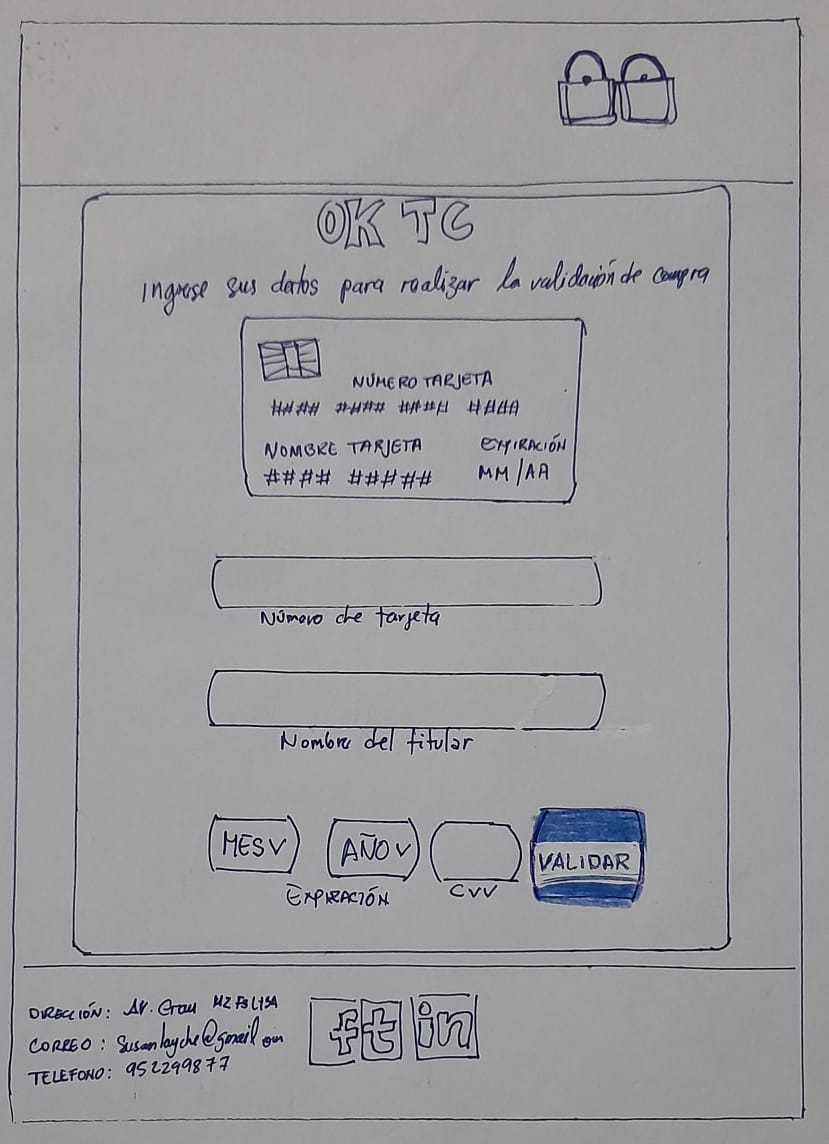 OK TC
Ingrese sus datos para realizar la validación de compra
NÚMERO TARJETA
#### #### #### ####
NOMBRE TARJETA EXPIRACIÓN
#### ##### MM/AA
Número de tarjeta
Nombre del titular
MES V AÑO V VALIDAR
EXPIRACIÓN CVV
DIRECCIÓN: AV. Grau MZ
CORREO:
TELEFONO: 952299877
f t in